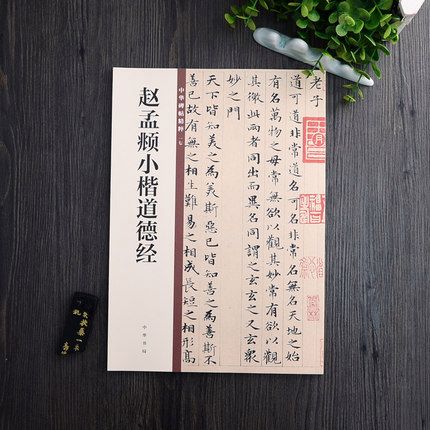 赵孟頫小楷道德经
中华碑帖精粹
中华书局
老子
道可道非常道名可名非常名無名天地之始
有名萬物之母常無欲以觀其妙常有欲以觀
其徼此兩者同出而異名同謂之玄玄之又玄衆
妙之門
天下皆知美之為美斯惡已皆知善之為善斯不
善已故有無之相生難易之相成長短之相形高